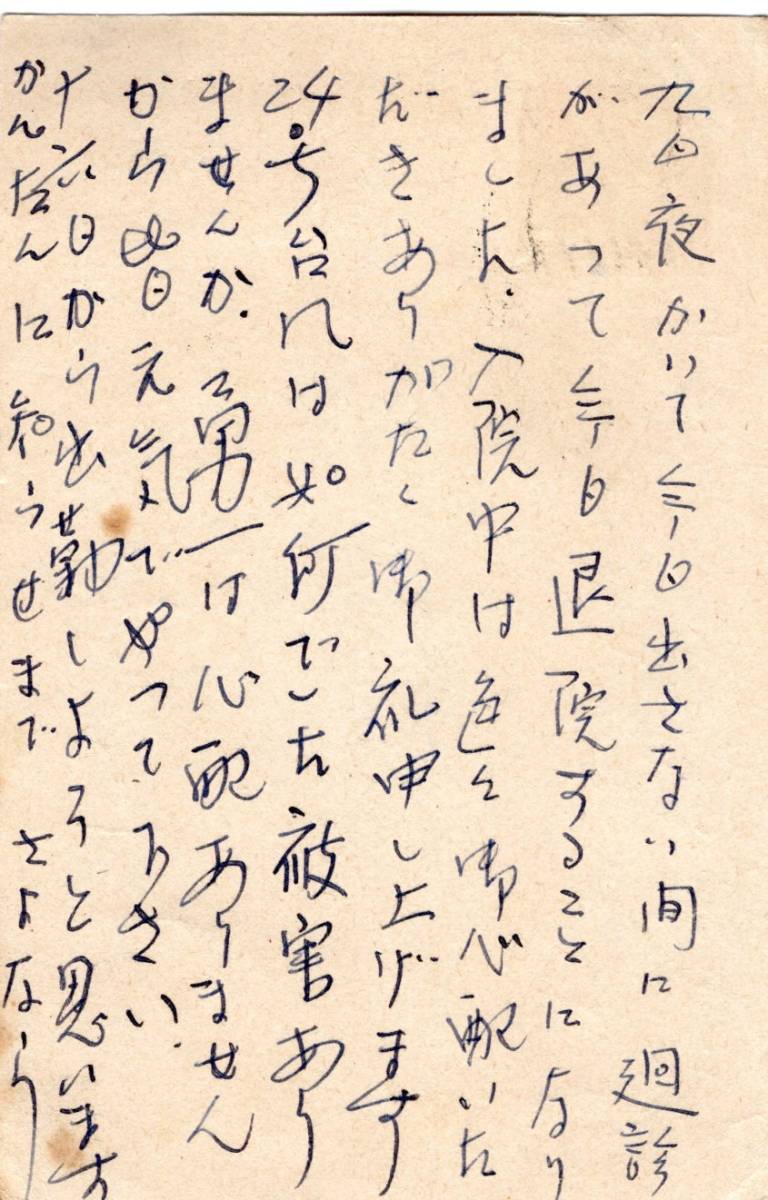 九日夜かいて今日出さない間に廻診
があつて今日退院することになり
ました.入院中は色々御心配いた
だきありがたく御礼申し上げます
24号台風は如何でした被害あり
ませんか.勇一は心配ありません
から毎日元気でやつて下さい.
十六日から出勤しようと思います
かんたんに知らせまで さよなら